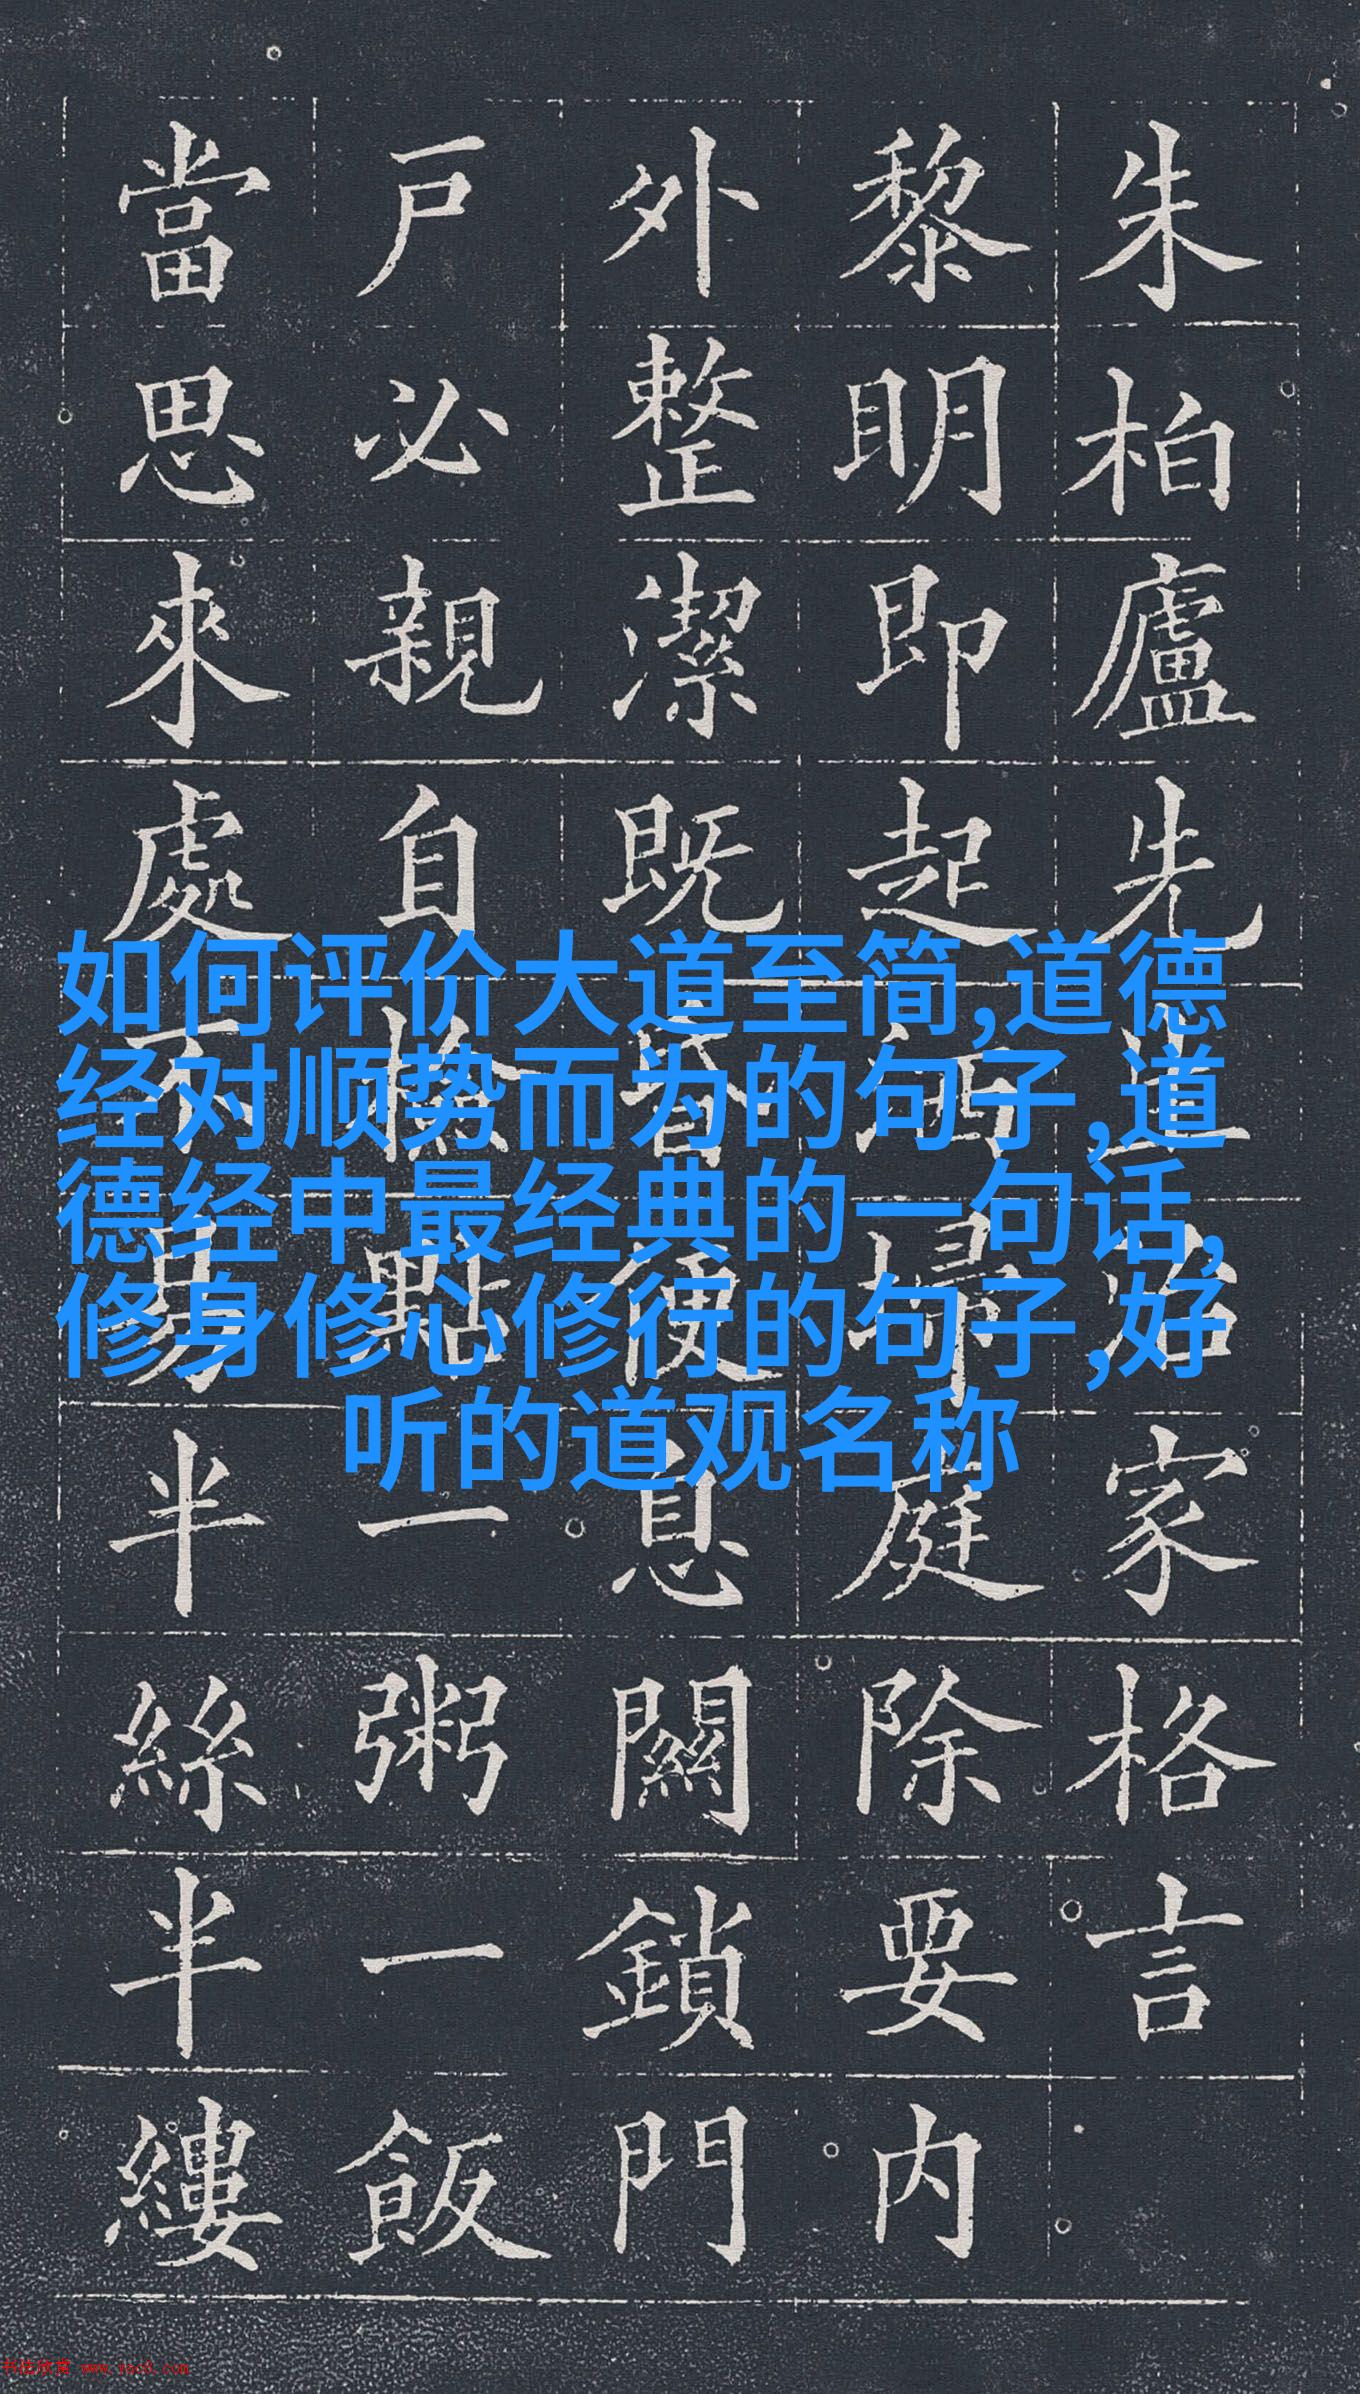 朱柏廬先生治家格言
黎明即起洒掃庭除要内
外整潔既昏便息關鎖門
戶必親自檢點一粥一飯
當思來處不易半絲半縷
如何评价大道至简,道德
经对顺势而为的句子,道
德经中最经典的一句话,
修身修心修行的句子,好
听的道观名称
书法欣赏 www.yac8.com